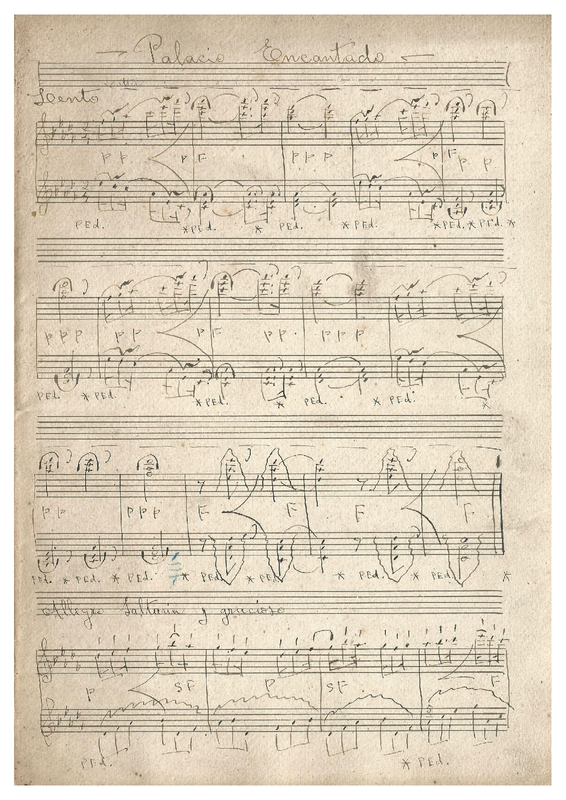 Palacio Encantado
Lento
p p. p F p p p p F p. p
PEd. * PEd. * PEd. * PEd. * PEd. * PEd. *
p p p p p p F p p. p p p
PEd. * PEd. * PEd. * PEd. * PEd. *
p p p p p F F F F.
PEd. * PEd. * PEd. * PEd. * PEd. * PEd. * PEd. *
Allegro Saltarin y gracioso
p SF p SF F
PEd. * PEd.